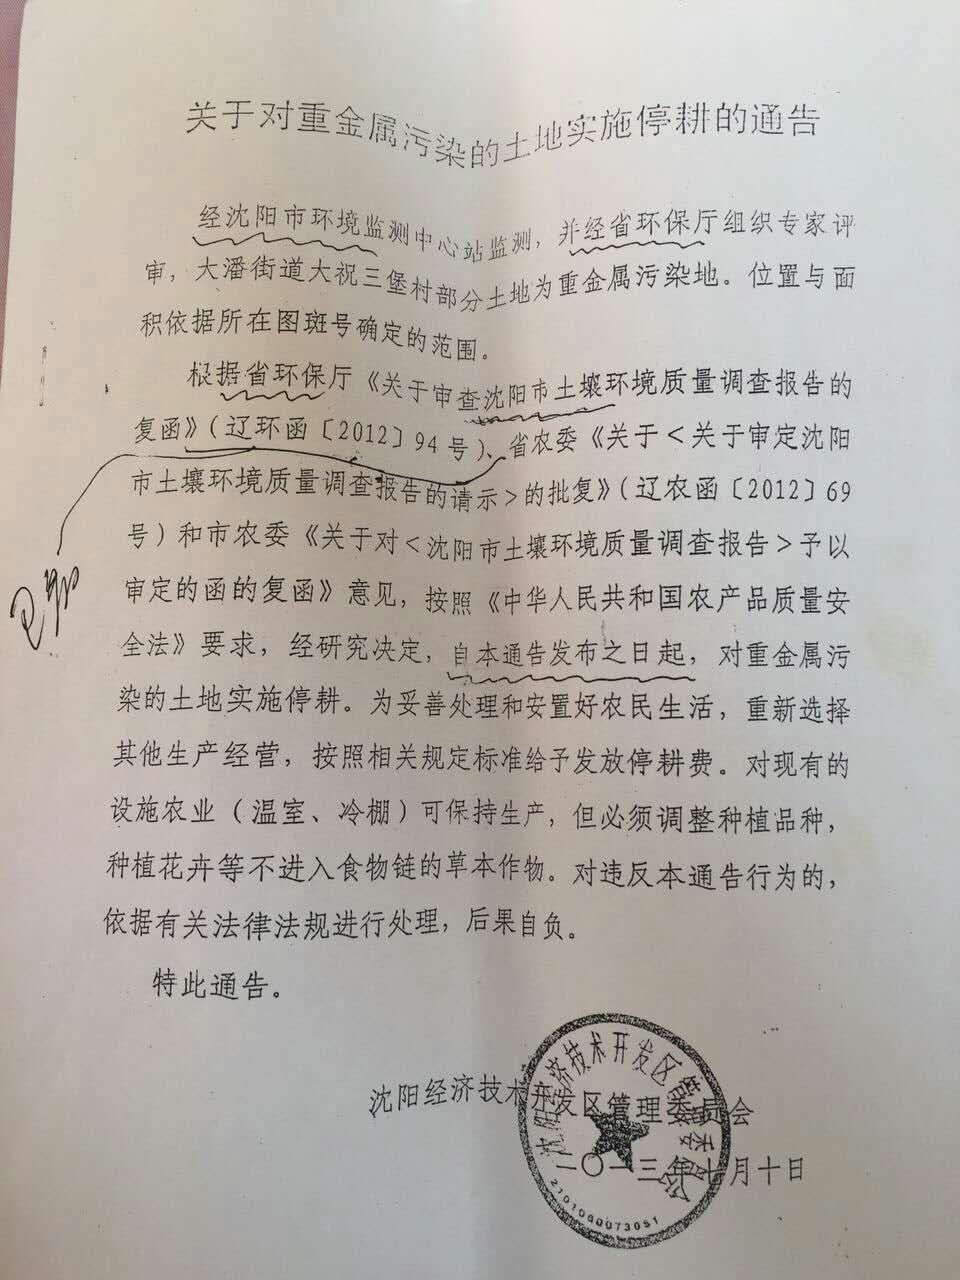 关于对重金属污染的土地实施停耕的通告
经沈阳市环境监测中心站监测，并经省环保厅组织专家评
审，大潘街道大祝三堡村部分土地为重金属污染地。位置与面
积依据所在图斑号确定的范围。
根据省环保厅《关于审查沈阳市土壤环境质量调查报告的
复函》（辽环函〔2012〕94号）、省农委《关于<关于审定沈阳
市土壤环境质量调查报告的请示>的批复》（辽农函〔2012〕69
号）和市农委《关于对<沈阳市土壤环境质量调查报告>予以
审定的函的复函》意见，按照《中华人民共和国农产品质量安
全法》要求，经研究决定，自本通告发布之日起，对重金属污
染的土地实施停耕。为妥善处理和安置好农民生活，重新选择
其他生产经营，按照相关规定标准给予发放停耕费。对现有的
设施农业（温室、冷棚）可保持生产，但必须调整种植品种，
种植花卉等不进入食物链的草本作物。对违反本通告行为的，
依据有关法律法规进行处理，后果自负。
特此通告。
沈阳经济技术开发区管理委员会
二〇一三年七月十日
沈阳经济技术开发区管理委员会
2101060073051